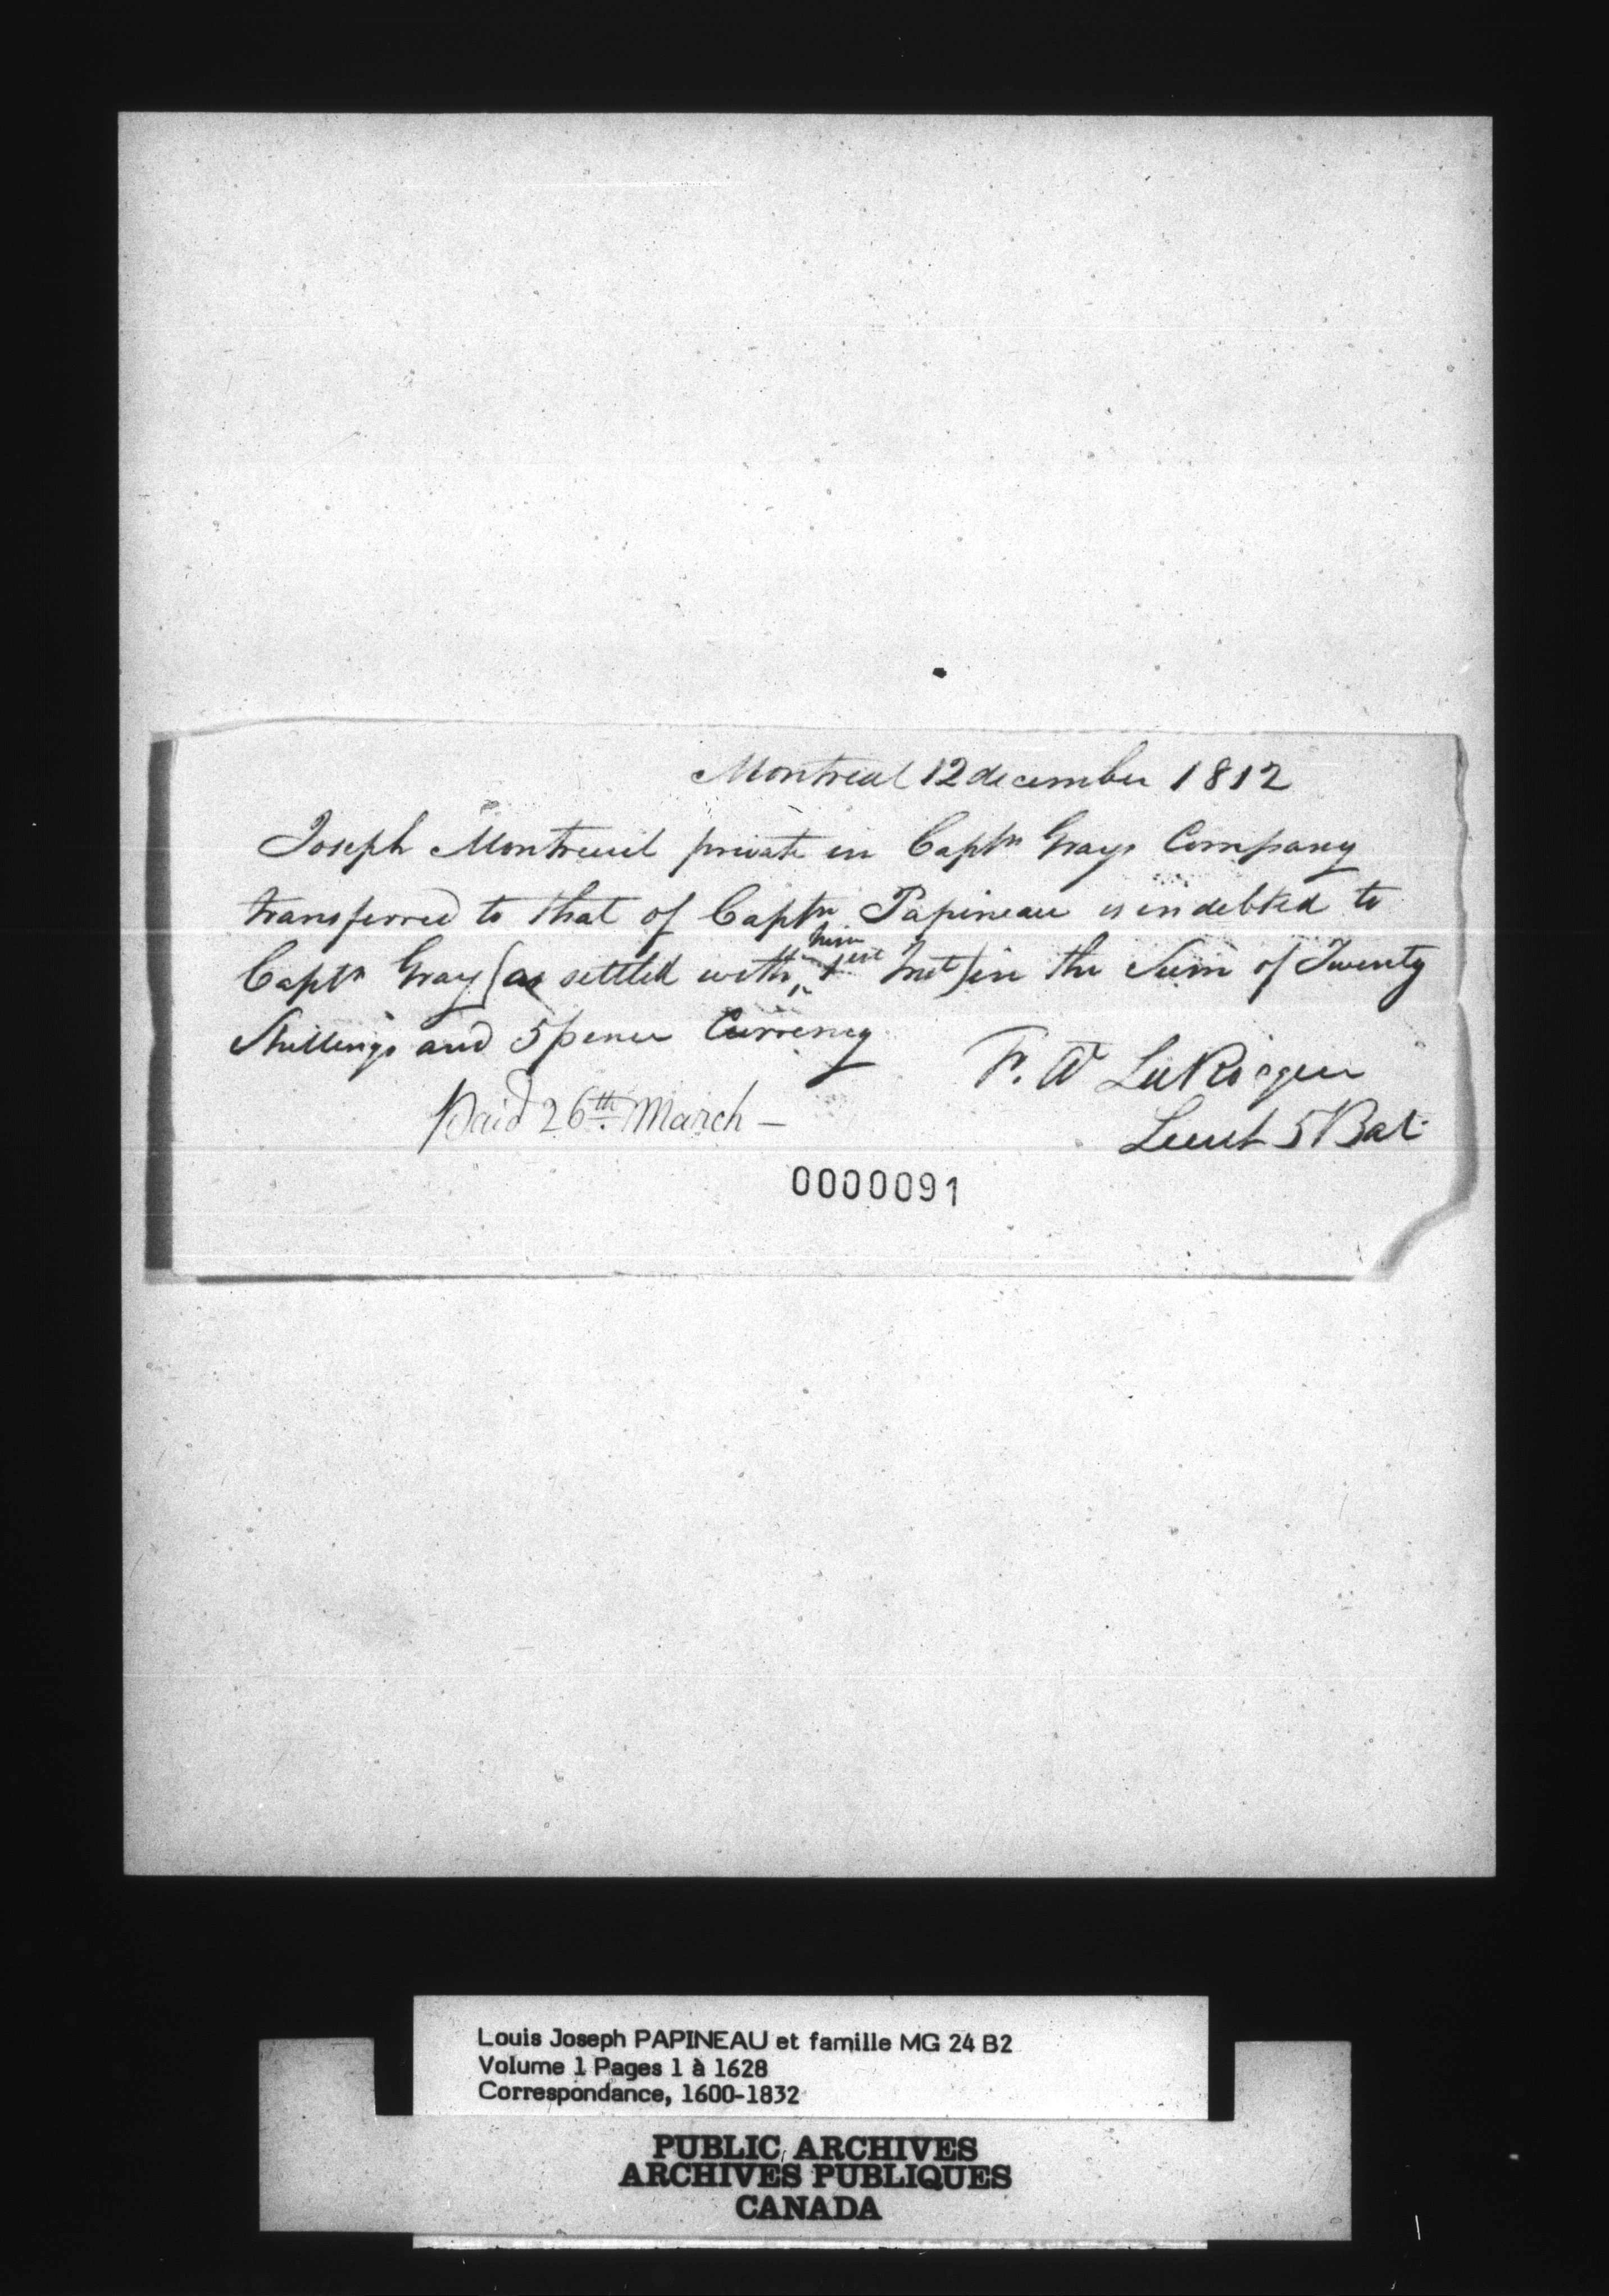 Montreal 12 december 1812
Joseph Montreuil private in Captn Grays Company
transferred to that of Captn Papineau is indebted to
him
Captn Gray (as settled with inst) in the Sum of Twenty
Shillings and 5 pence Currency
F. A LaRocque
Lieut 5 Bat.
Paid 26th March —
0000091
Louis Joseph PAPINEAU et famille MG 24 B2
Volume 1 Pages 1 à 1628
Correspondance, 1600-1832
PUBLIC ARCHIVES
ARCHIVES PUBLIQUES
CANADA